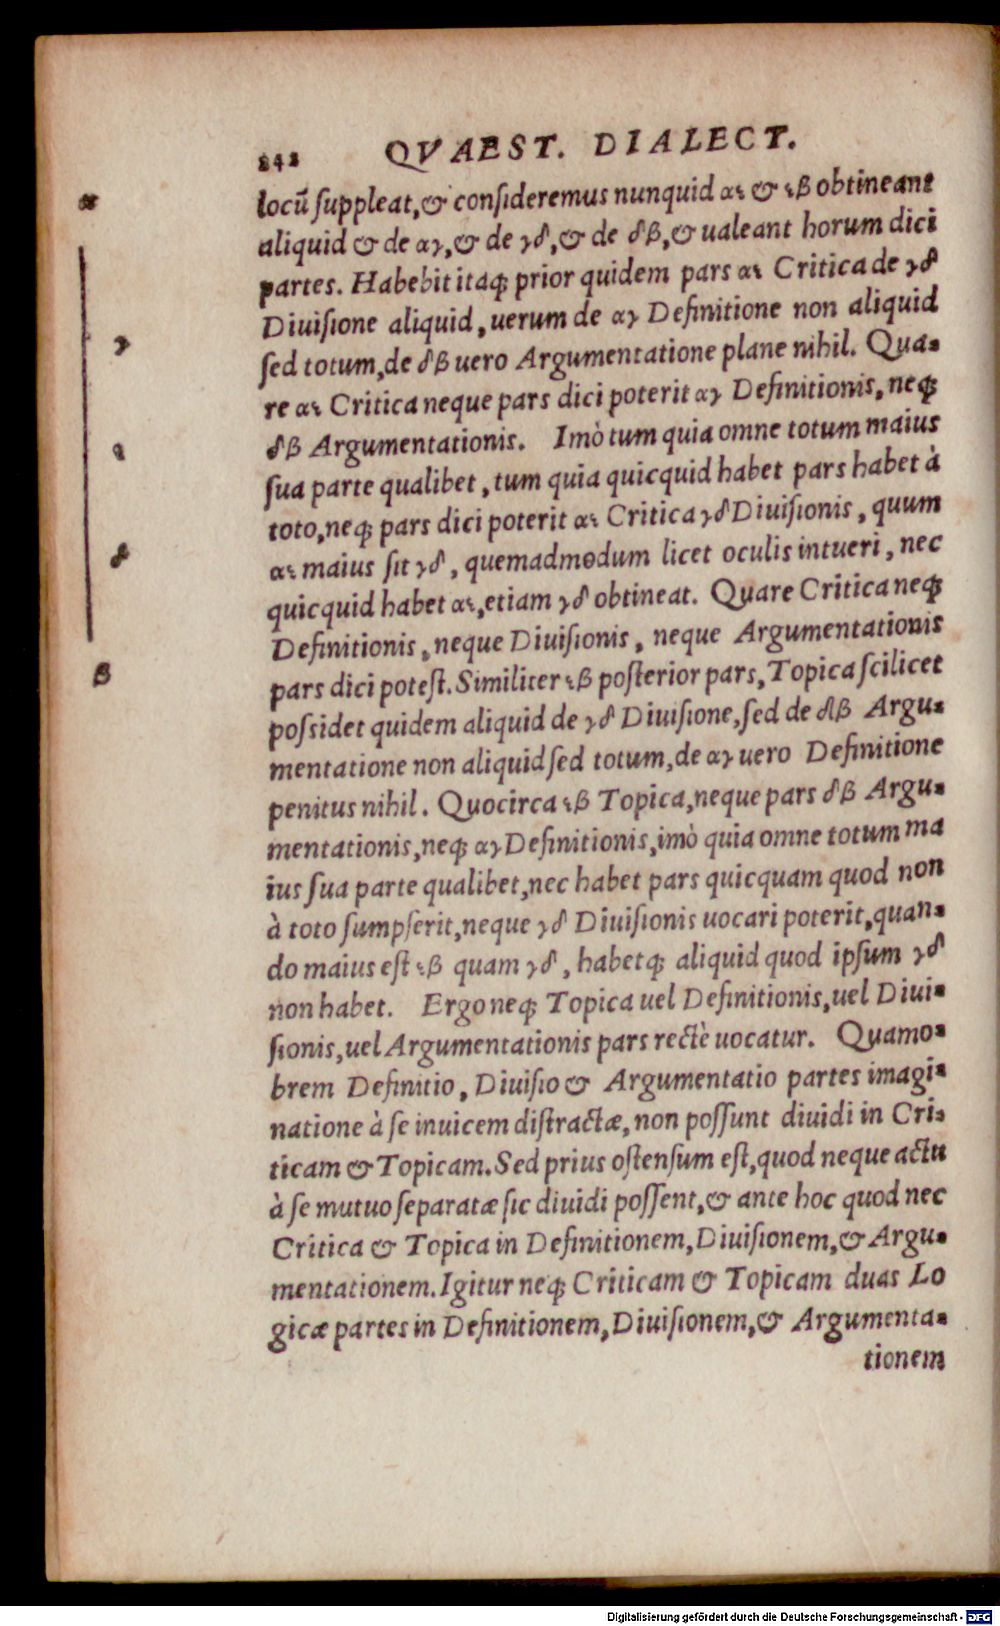 242 QVAEST. DIALECT.
locũ ſuppleat,& conſideremus nunquid αι & ιβ obtineant
aliquid & de αγ,& de γδ,& de δβ,& ualeant horum dici
partes. Habebit itaq; prior quidem pars αι Critica de γδ
Diuiſione aliquid, uerum de αγ Definitione non aliquid
ſed totum,de δβ uero Argumentatione plane nihil. Qua-
re αι Critica neque pars dici poterit αγ Definitionis, neq;
δβ Argumentationis. Imò tum quia omne totum maius
ſua parte qualibet, tum quia quicquid habet pars habet à
toto,neq; pars dici poterit αι Critica γδ Diuiſionis, quum
αι maius ſit γδ, quemadmodum licet oculis intueri, nec
quicquid habet αι,etiam γδ obtineat. Quare Critica neq;
Definitionis, neque Diuiſionis, neque Argumentationis
pars dici poteſt. Similiter ιβ poſterior pars, Topica ſcilicet
poſsidet quidem aliquid de γδ Diuiſione,ſed de δβ Argu-
mentatione non aliquid ſed totum,de αγ uero Definitione
penitus nihil. Quocirca ιβ Topica,neque pars δβ Argu-
mentationis,neq; αγ Definitionis,imò quia omne totum ma
ius ſua parte qualibet,nec habet pars quicquam quod non
à toto ſumpſerit,neque γδ Diuiſionis uocari poterit,quan-
do maius eſt ιβ quam γδ, habetq; aliquid quod ipſum γδ
non habet. Ergo neq; Topica uel Definitionis,uel Diui-
ſionis,uel Argumentationis pars rectè uocatur. Quamo-
brem Definitio, Diuiſio & Argumentatio partes imagi-
natione à ſe inuicem diſtractæ, non poſſunt diuidi in Cri-
ticam & Topicam. Sed prius oſtenſum eſt,quod neque actu
à ſe mutuo ſeparatæ ſic diuidi poſſent,& ante hoc quod nec
Critica & Topica in Definitionem, Diuiſionem,& Argu-
mentationem. Igitur neq; Criticam & Topicam duas Lo
gicæ partes in Definitionem, Diuiſionem,& Argumenta-
tionem
α
γ
ι
δ
β
Digitalisierung gefördert durch die Deutsche Forschungsgemeinschaft - DFG